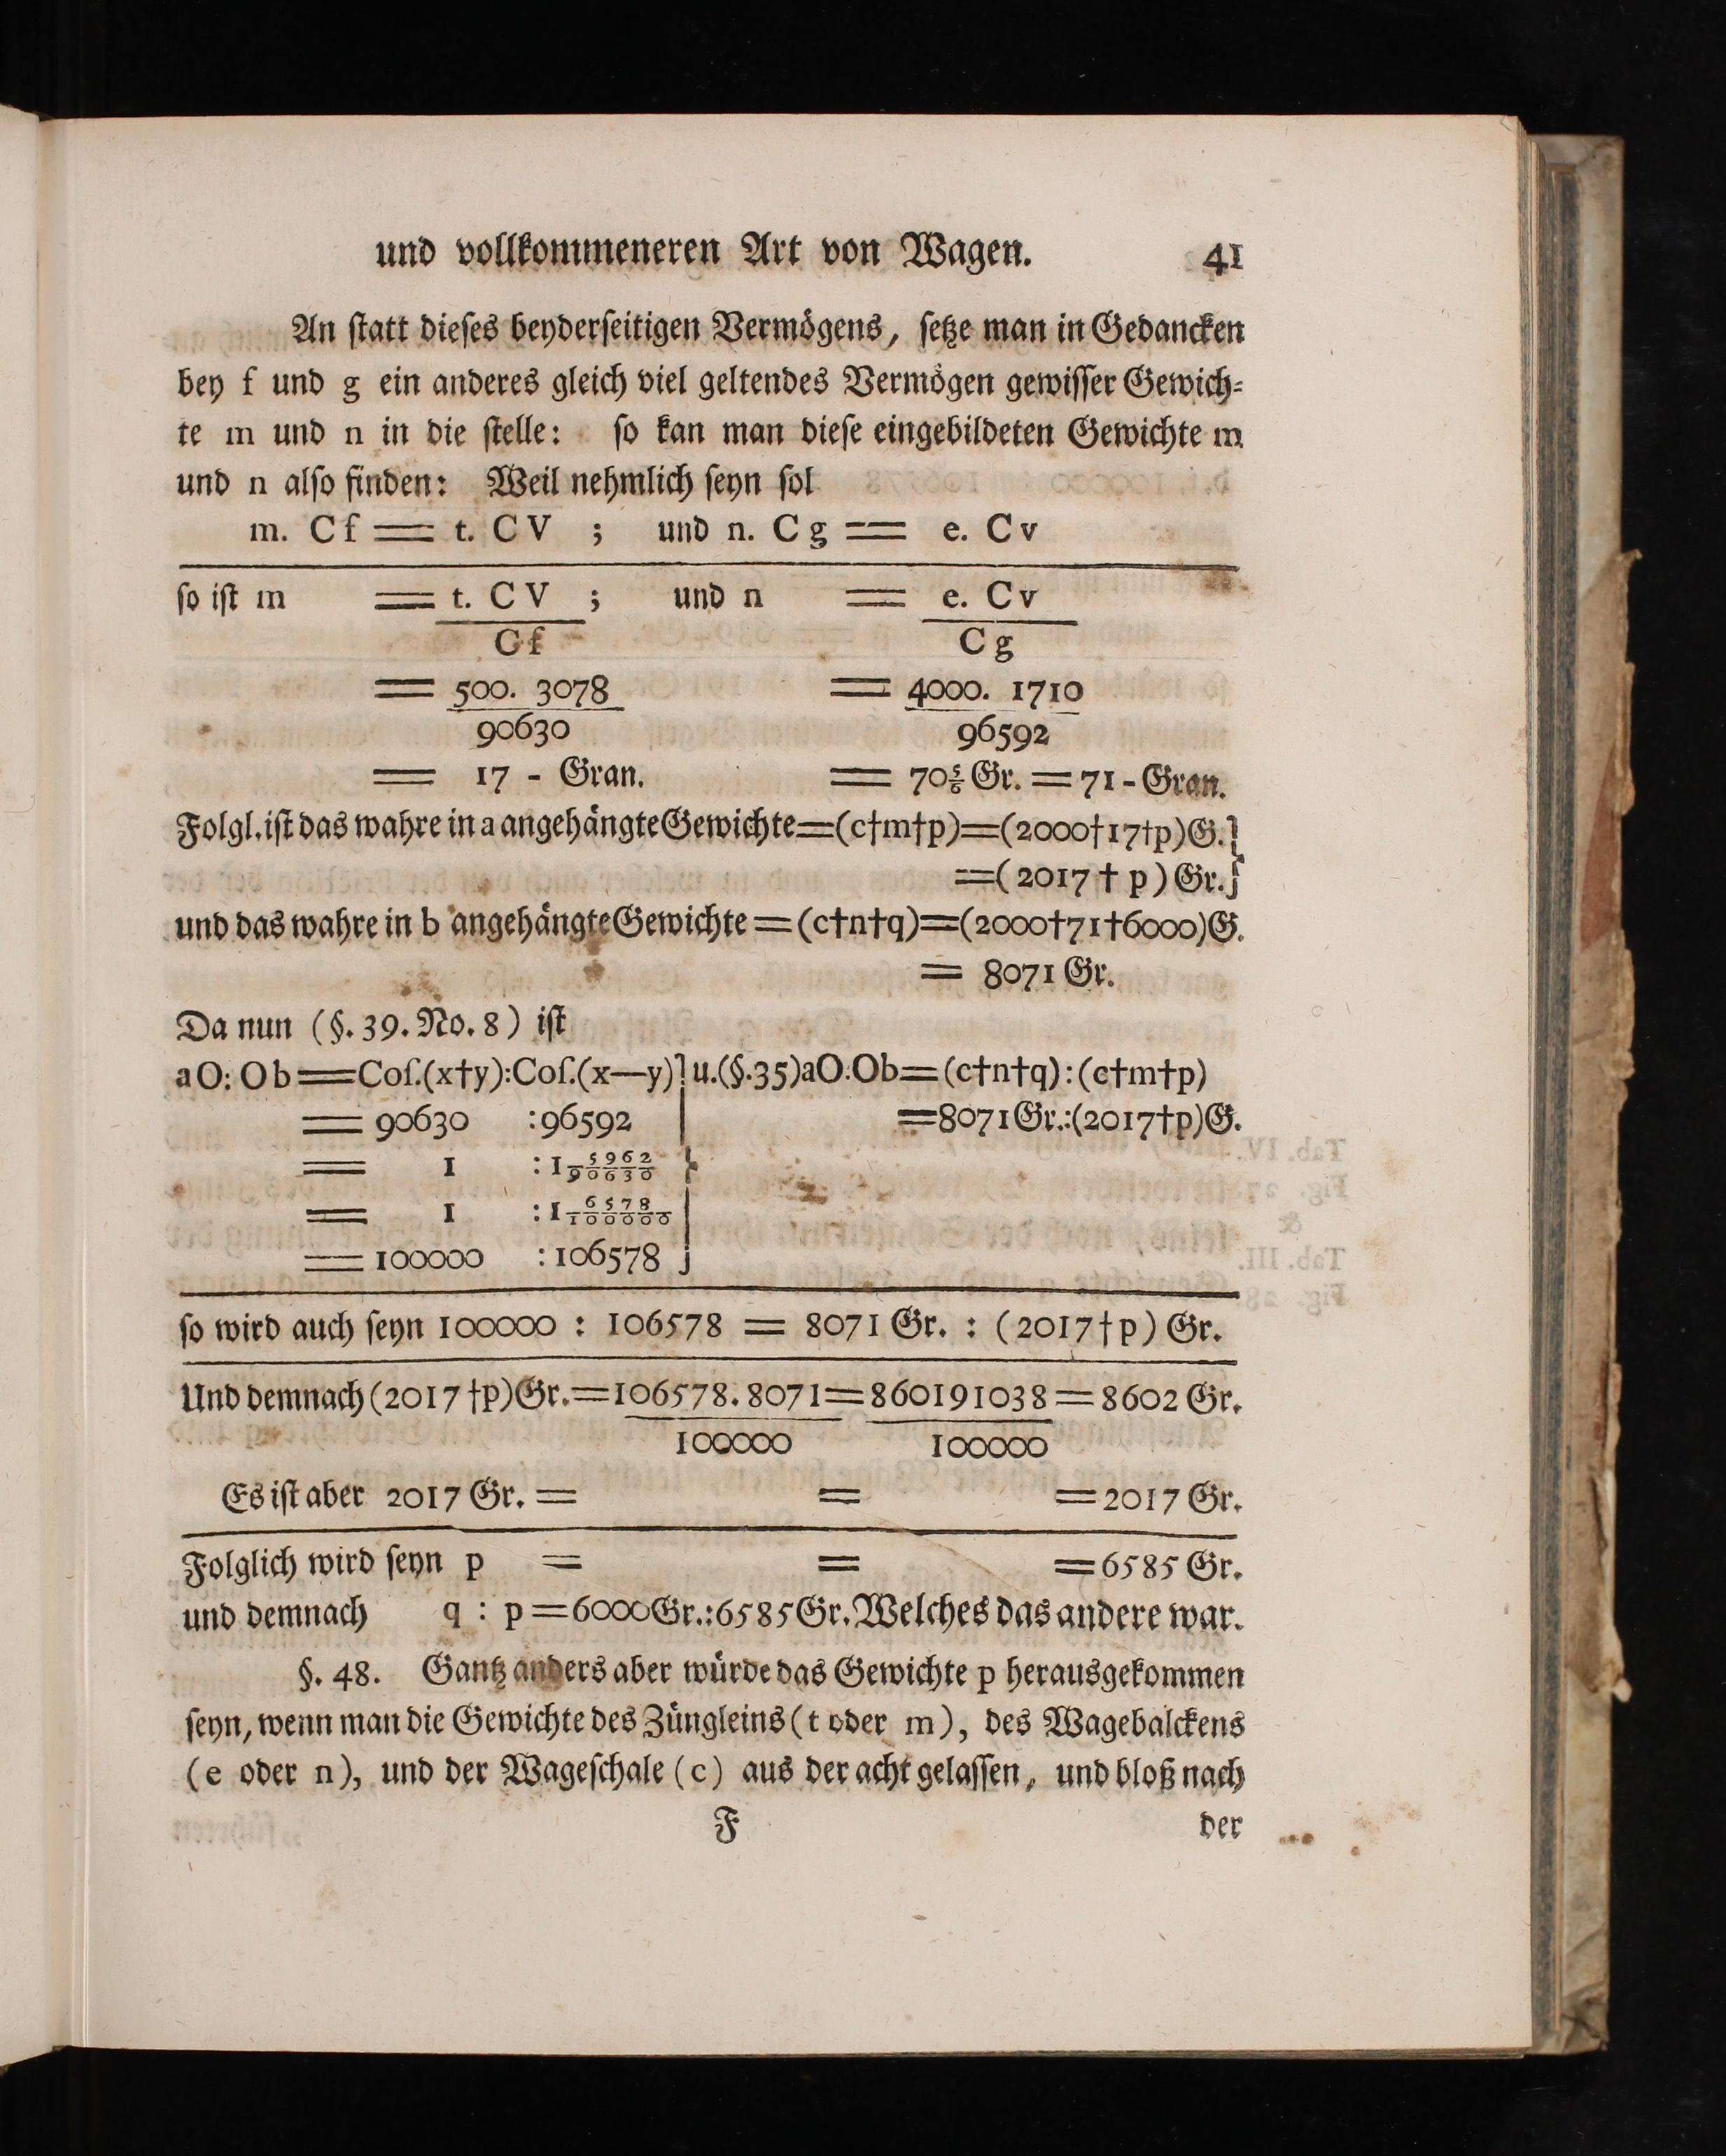 und vollkommeneren Art von Wagen. 41
An ſtatt dieſes beyderſeitigen Vermögens, ſetze man in Gedancken
bey f und g ein anderes gleich viel geltendes Vermögen gewiſſer Gewich⸗
te m und n in die ſtelle: ſo kan man dieſe eingebildeten Gewichte m
und n alſo finden: Weil nehmlich ſeyn ſol
m. Cf = t. CV ; und n. Cg = e. Cv
ſo iſt m = t. CV ; und n = e. Cv
Cf Cg
= 500. 3078 = 4000. 1710
90630 96592
= 17 - Gran. = 70⅚ Gr. = 71 - Gran.
Folgl. iſt das wahre in a angehängte Gewichte=(c†m†p)=(2000†17†p)G.}
=(2017 † p) Gr.}
und das wahre in b angehängte Gewichte = (c†n†q)=(2000†71†6000)G.
= 8071 Gr.
Da nun (§. 39. No. 8) iſt
aO: Ob=Coſ.(x†y):Coſ.(x—y)} u.(§.35)aO:Ob=(c†n†q):(c†m†p)
= 90630 :96592 =8071Gr.:(2017†p)G.
= 1 :1 5962/90630 }
= 1 :1 6578/100000
= 100000 :106578 }
ſo wird auch ſeyn 100000 : 106578 = 8071 Gr. : (2017†p) Gr.
Und demnach (2017†p)Gr.=106578.8071=860191038=8602 Gr.
100000 100000
Es iſt aber 2017 Gr. = = =2017 Gr.
Folglich wird ſeyn p = = =6585 Gr.
und demnach q : p =6000Gr.:6585Gr. Welches das andere war.
§. 48. Gantz anders aber würde das Gewichte p herausgekommen
ſeyn, wenn man die Gewichte des Züngleins (t oder m), des Wagebalckens
(e oder n), und der Wageſchale (c) aus der acht gelaſſen, und bloß nach
F der